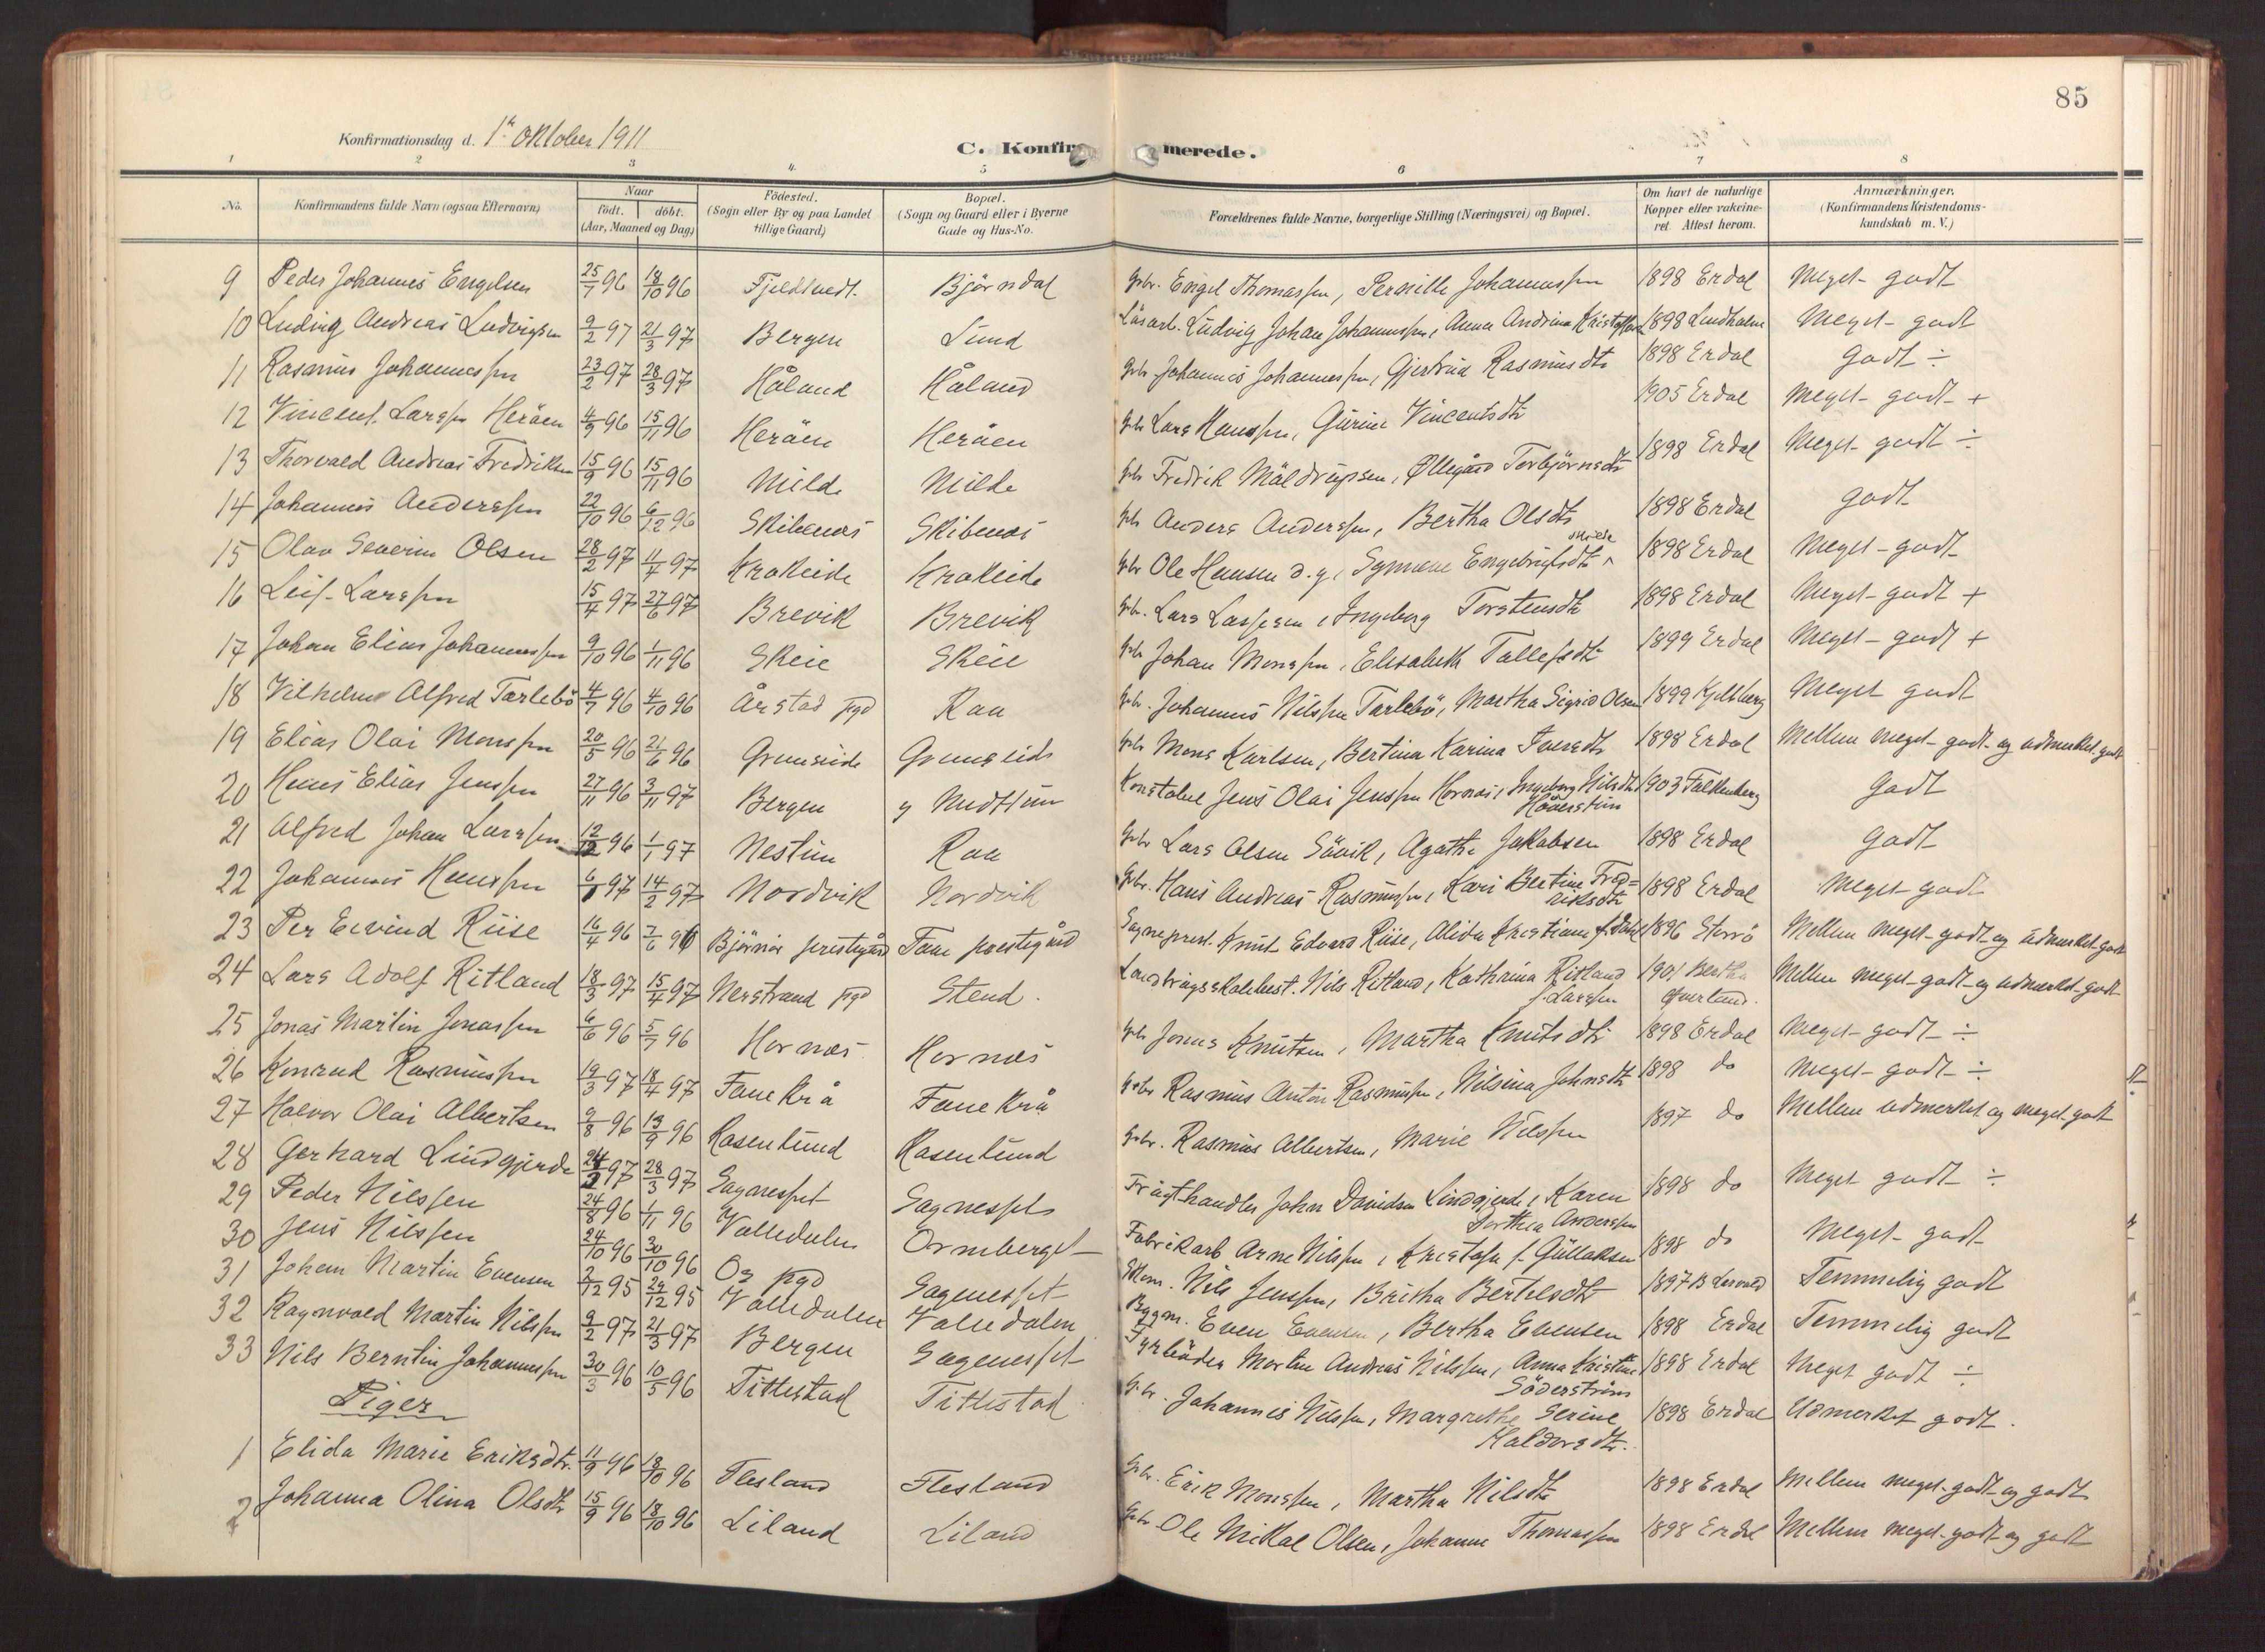 85
Konfirmationsdag d. 1ste Oktober 1911
C. Konfirmerede.
1 2 3 4 5 6 7 8
No. Konfirmandens fulde Navn (ogsaa Efternavn) Naar födt. döbt. (Aar, Maaned og Dag) Födested. (Sogn eller By og paa Landet tillige Gaard) Bopæl. (Sogn og Gaard eller i Byerne Gade og Hus-No. Forældrenes fulde Navne, borgerlige Stilling (Næringsvei) og Bopæl. Om havt de naturlige Kopper eller vakcineret. Attest herom. Anmærkninger. (Konfirmandens Kristendomskundskab m. V.)
9 Peder Johannes Engelsen 25/7 96 18/10 96 Fjeldtvedt. Björndal Gbr. Engel Thomassen, Pernille Johannessen 1898 Erdal Meget godt
10 Ludvig Andreas Ludvigsen 9/2 97 21/3 97 Bergen Lund Ludvig Johan Johannessen, Anna Andrina 1898 Lindholm Meget godt
11 Rasmus Johannessen 23/2 97 28/3 97 Håland Håland Gbr. Johannes Johannessen, Gjertrud Rasmusdtr 1898 Erdal Godt ÷
12 Vincent Larssen Heröen 4/9 96 15/11 96 Heröen Heröen Gbr Lars Hanssen, Gurine Vincentsdtr 1905 Erdal Meget godt +
13 Thorvald Andreas Fredriksen 15/9 96 15/11 96 Milde Milde Gbr Fredrik Mäldrupsen, Øllegård Torbjörnsdtr 1898 Erdal Meget godt ÷
14 Johannes Anderssen 22/10 96 6/12 96 Skibenes Skibenes Gbr Anders Anderssen, Bertha Olsdtr 1898 Erdal godt
15 Olav Severin Olsen 28/2 97 11/4 97 Krokeide Krokeide Gbr Ole Hansen d. y., Synneve Engebrigtsdtr 1898 Erdal Meget godt
16 Leif Larssen 15/4 97 27/6 97 Brevik Brevik Gbr. Lars Lassesen, Ingeborg Torstensdtr 1898 Erdal Meget godt +
17 Johan Elias Johannessen 9/10 96 1/11 96 Skeie Skeie Gbr Johan Monssen, Elisabeth Tollefsdtr 1899 Erdal Meget godt +
18 Vilhelm Alfred Tarlebö 4/7 96 4/10 96 Årstad pgd Raa Gbr. Johannes Nilssen Tarlebö, Martha Sigrid Olsen 1899 Meget godt
19 Elias Olai Monssen 20/5 96 21/6 96 Grimseide Grimseide Gbr Mons Karlsen, Bertina Karina Iversdtr 1898 Erdal Mellem meget godt og udmerket godt
20 Hans Elias Jenssen 27/11 96 3/11 97 Bergen y Midttun Konstabel Jens Olai Jenssen Hornæs, Ingeborg Nilsdtr 1903 Falkenberg Godt
21 Alfred Johan Larssen 12/12 96 1/1 97 Nestun Raa Gbr Lars Olsen Sövik, Agathe Jakobsen 1898 Erdal Godt
22 Johannes Hanssen 6/1 97 14/2 97 Nordvik Nordvik Gbr. Hans Andreas Rasmussen, Kari Bertine Fredriksdtr 1898 Erdal Meget godt
23 Per Eivind Riise 16/4 96 7/6 96 Björnör prestegård Fane prestegård Sogneprest. Knut Edvard Riise, Alida Kristiana f. Dahl 1896 Storrö Mellem meget godt og udmerket godt
24 Lars Adolf Ritland 18/3 97 15/4 97 Nerstrand pgd Stend. Landbrugsskolebest. Nils Ritland, Kathrina Ritland f. Larssen 1901 Bertha Qverland. Mellem meget godt og udmerket godt
25 Jonas Martin Jonassen 6/6 96 5/7 96 Hornæs Hornæs Gbr Jonas Knutsen, Martha Knutsdtr 1898 Erdal Meget godt ÷
26 Konrad Rasmussen 19/3 97 18/4 97 Fanekrå Fanekrå Gbr Rasmus Anton Rasmussen, Nilsina Johnsdtr 1898 do Meget godt ÷
27 Halvor Olai Albertsen 9/8 96 13/9 96 Rosenlund Rosenlund Gbr. Rasmus Albertsen, Marie Nilssen 1897 do Mellem udmerket og meget godt
28 Gerhard Lindgjerde 24/2 97 28/3 97 Sagnesset Sagnesset Frugthandler John Davidsen Lindgjerde, Karen Dorthea Anderssen 1898 do Meget godt ÷
29 Peder Nilssen 24/8 96 1/11 96 Valledalen Ormberget Fabrikarb Arne Nilssen, f. Gullaksen 1898 do Meget godt
30 Jens Nilssen 24/10 96 30/10 96 Os pgd Sagnesset Nils Jenssen, Britha Bertelsdtr 1897 Temmelig godt
31 Johan Martin Evensen 2/12 95 29/12 95 Valledalen Valledalen Bygm. Even Evensen, Bertha Evensen 1898 Erdal Temmelig godt
32 Ragnvald Martin Nilssen 9/2 97 21/3 97 Bergen Sagenesset Fyrböder Morten Andreas Nilssen, Anna Kristine Söderström 1898 Erdal Meget godt ÷
33 Nils Berntin Johannessen 30/3 96 10/5 96 Tittestad Tittestad Gbr. Johannes Nilssen, Margrethe Serine Haldorsdtr. 1898 Erdal Udmerket godt.
Piger
1 Elida Marie Eriksdtr. 11/9 96 18/10 96 Flesland Flesland Gbr. Erik Monssen, Martha Nilsdtr 1898 Erdal Mellem meget godt og godt
2 Johanna Olina Olsdtr 15/9 96 18/10 96 Liland Liland Gbr. Ole Mikal Olsen, Johanne Thomassen 1898 Erdal Mellem meget godt og godt